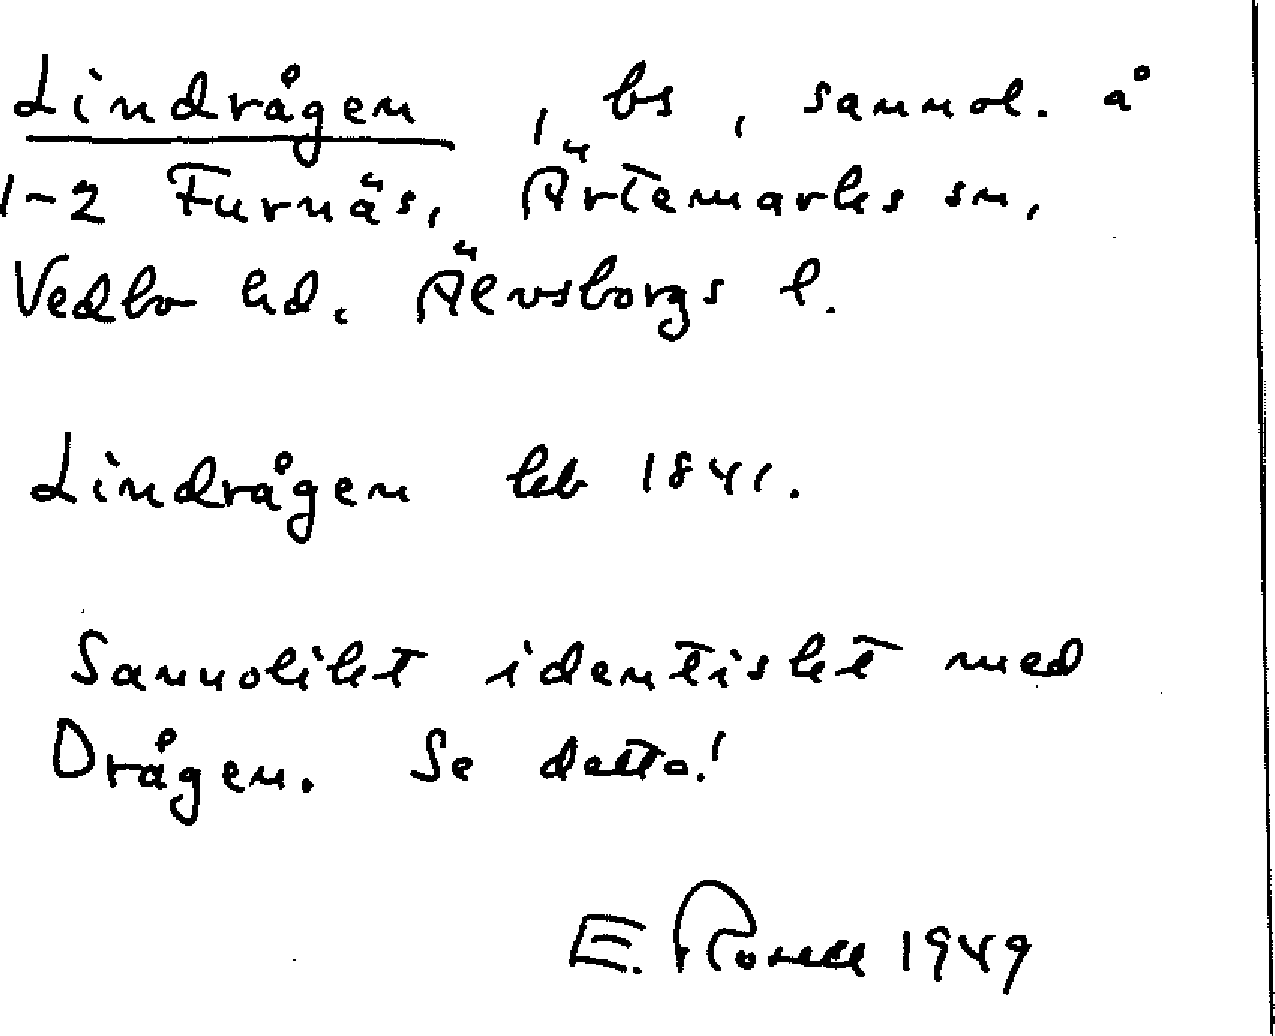 Lindrågen, bs, sannol. å
1-2 Furnäs, Ärtemarks sn,
Vedbo hd. Älvsborgs l.
Lindrågen lhb 1841.
Sannolikt identiskt med
Drågen. Se detta!
E. 1949